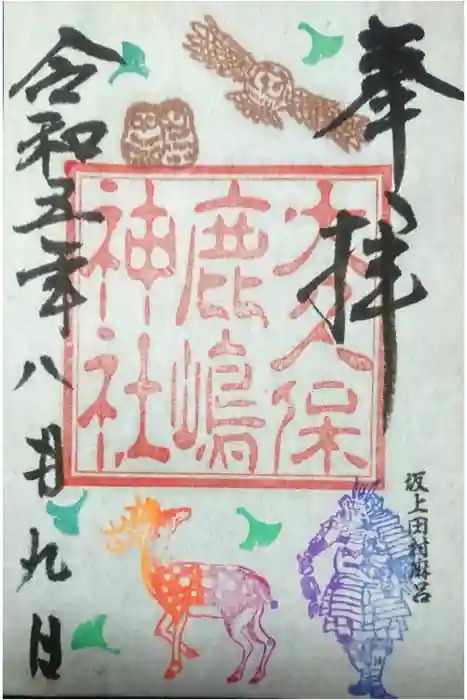 奉拝
大久保
鹿嶋
神社
令和五年八月九日
坂上田村麻呂